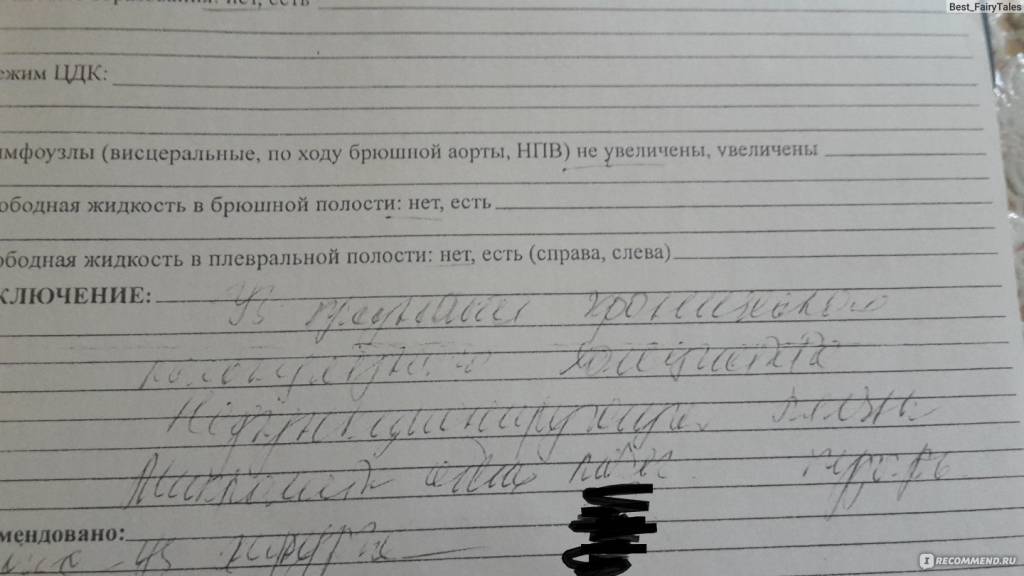 Best_FairyTales
нет, есть
ежим ЦДК:
имфоузлы (висцеральные, по ходу брюшной аорты, НПВ) не увеличены, увеличены
ободная жидкость в брюшной полости: нет, есть
ободная жидкость в плевральной полости: нет, есть (справа, слева)
КЛЮЧЕНИЕ: Уз признаки хронического
калькулезного холецистита
Нефункционирующий
мендовано:
хирурга
RECOMMEND.RU